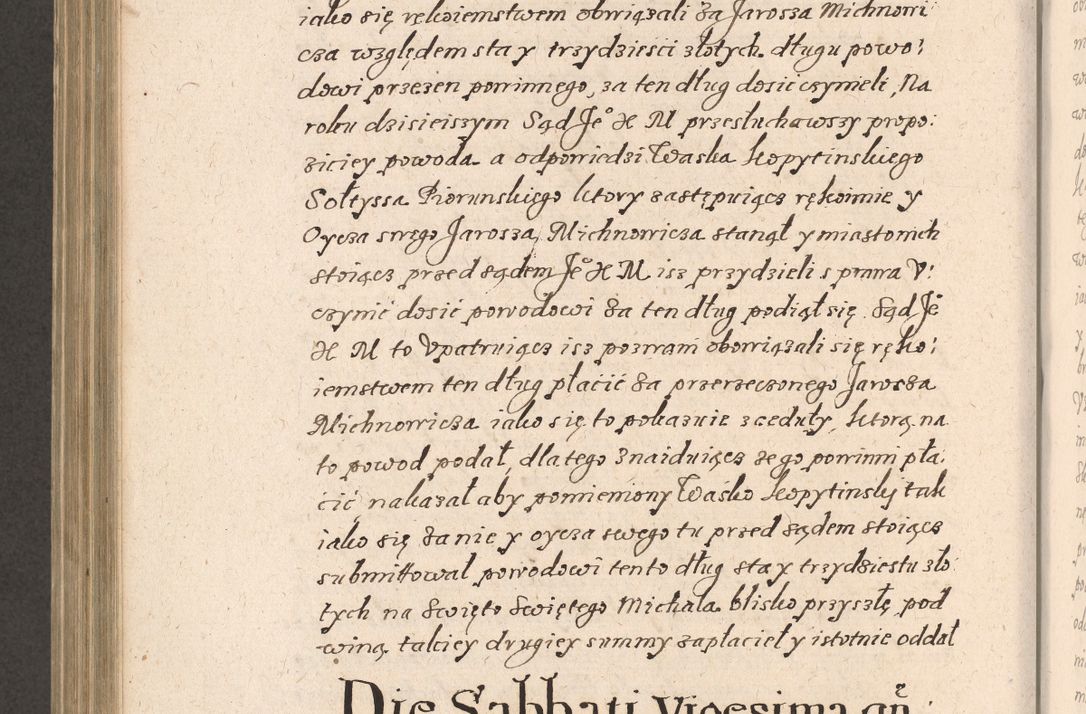 iako się rękoiemstwem obwiązali za Jarosza Michnowi
cza względem sta y trzydziesci złotych długu powo:
dowi przezen powinnego, za ten dług dosic czynieli, Na
roku dzisieiszym Sąd Je° X M przesłuchawszy propo:
ziciey powoda a odpowiedzi Waska Kopytinskiego
Sołtyssa Piorunskiego ktory zastępuiącz rękoimie y
Oycza swego Jarosza Michnowicza stanął y miasto nich
stoiącz przed sądem Je° X M isz przydzieli s prawa V:
czynić dosić powodowi za ten dług podiął się. Sąd Je°
X M to Vpatruiącz isz pozwani obowiązali się ręko:
iemstwem ten dług płacić za przerzeczonego Jarosza
Michnowicza iako się to pokazuie z ceduły, ktorą na
to powod podał, dla tego znaiduiącz ze go powinni pła:
cić nakazał aby pomieniony Waśko Kopytinskj tak
iako się za nie y oycza swego tu przed sądem stoiącz
submittował powodowi tento dług sta y trzydziestu zło
tych na Swięto Swiętego Michała blisko przyszłę pod
winą takiey drugiey summy zapłacieł y istotnie oddał
Die Sabbati Vigesima